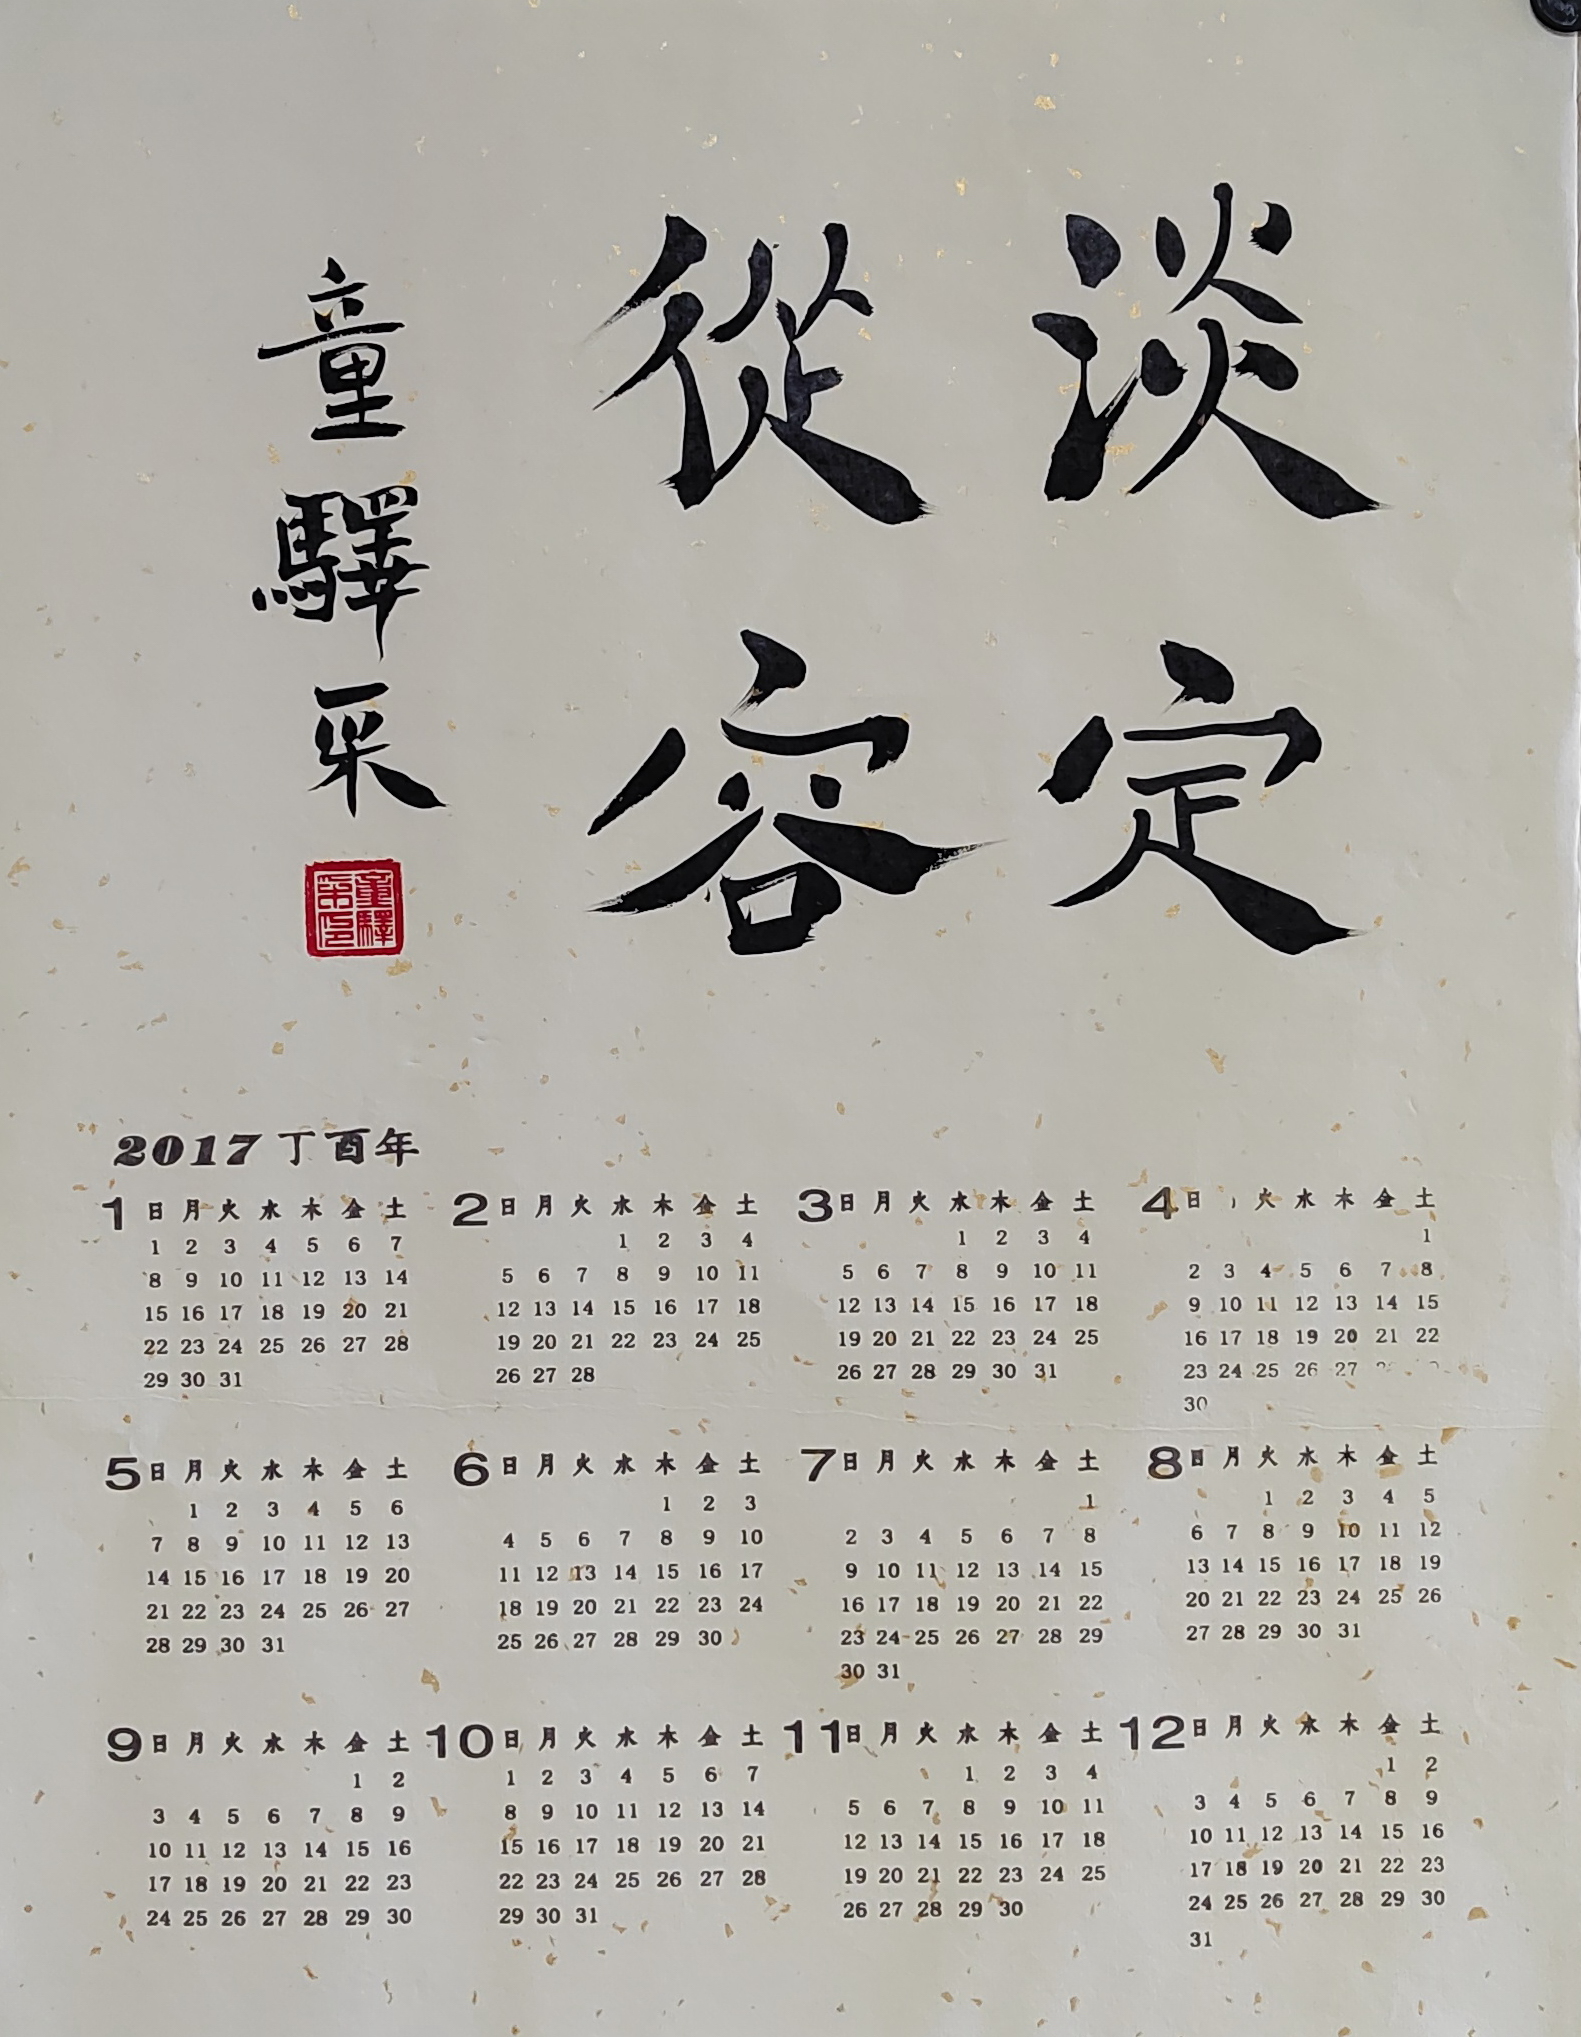 淡定
從容
童驛采
童驛
采印
2017 丁酉年
1 日 月 火 水 木 金 土
1 2 3 4 5 6 7
8 9 10 11 12 13 14
15 16 17 18 19 20 21
22 23 24 25 26 27 28
29 30 31
2 日 月 火 水 木 金 土
1 2 3 4
5 6 7 8 9 10 11
12 13 14 15 16 17 18
19 20 21 22 23 24 25
26 27 28
3 日 月 火 水 木 金 土
1 2 3 4
5 6 7 8 9 10 11
12 13 14 15 16 17 18
19 20 21 22 23 24 25
26 27 28 29 30 31
4 日 火 水 木 金 土
1
2 3 4 5 6 7 8
9 10 11 12 13 14 15
16 17 18 19 20 21 22
23 24 25 26 27
30
5 日 月 火 水 木 金 土
1 2 3 4 5 6
7 8 9 10 11 12 13
14 15 16 17 18 19 20
21 22 23 24 25 26 27
28 29 30 31
6 日 月 火 水 木 金 土
1 2 3
4 5 6 7 8 9 10
11 12 13 14 15 16 17
18 19 20 21 22 23 24
25 26 27 28 29 30
7 日 月 火 水 木 金 土
1
2 3 4 5 6 7 8
9 10 11 12 13 14 15
16 17 18 19 20 21 22
23 24 25 26 27 28 29
30 31
8 日 月 火 水 木 金 土
1 2 3 4 5
6 7 8 9 10 11 12
13 14 15 16 17 18 19
20 21 22 23 24 25 26
27 28 29 30 31
9 日 月 火 水 木 金 土
1 2
3 4 5 6 7 8 9
10 11 12 13 14 15 16
17 18 19 20 21 22 23
24 25 26 27 28 29 30
10 日 月 火 水 木 金 土
1 2 3 4 5 6 7
8 9 10 11 12 13 14
15 16 17 18 19 20 21
22 23 24 25 26 27 28
29 30 31
11 日 月 火 水 木 金 土
1 2 3 4
5 6 7 8 9 10 11
12 13 14 15 16 17 18
19 20 21 22 23 24 25
26 27 28 29 30
12 日 月 火 水 木 金 土
1 2
3 4 5 6 7 8 9
10 11 12 13 14 15 16
17 18 19 20 21 22 23
24 25 26 27 28 29 30
31